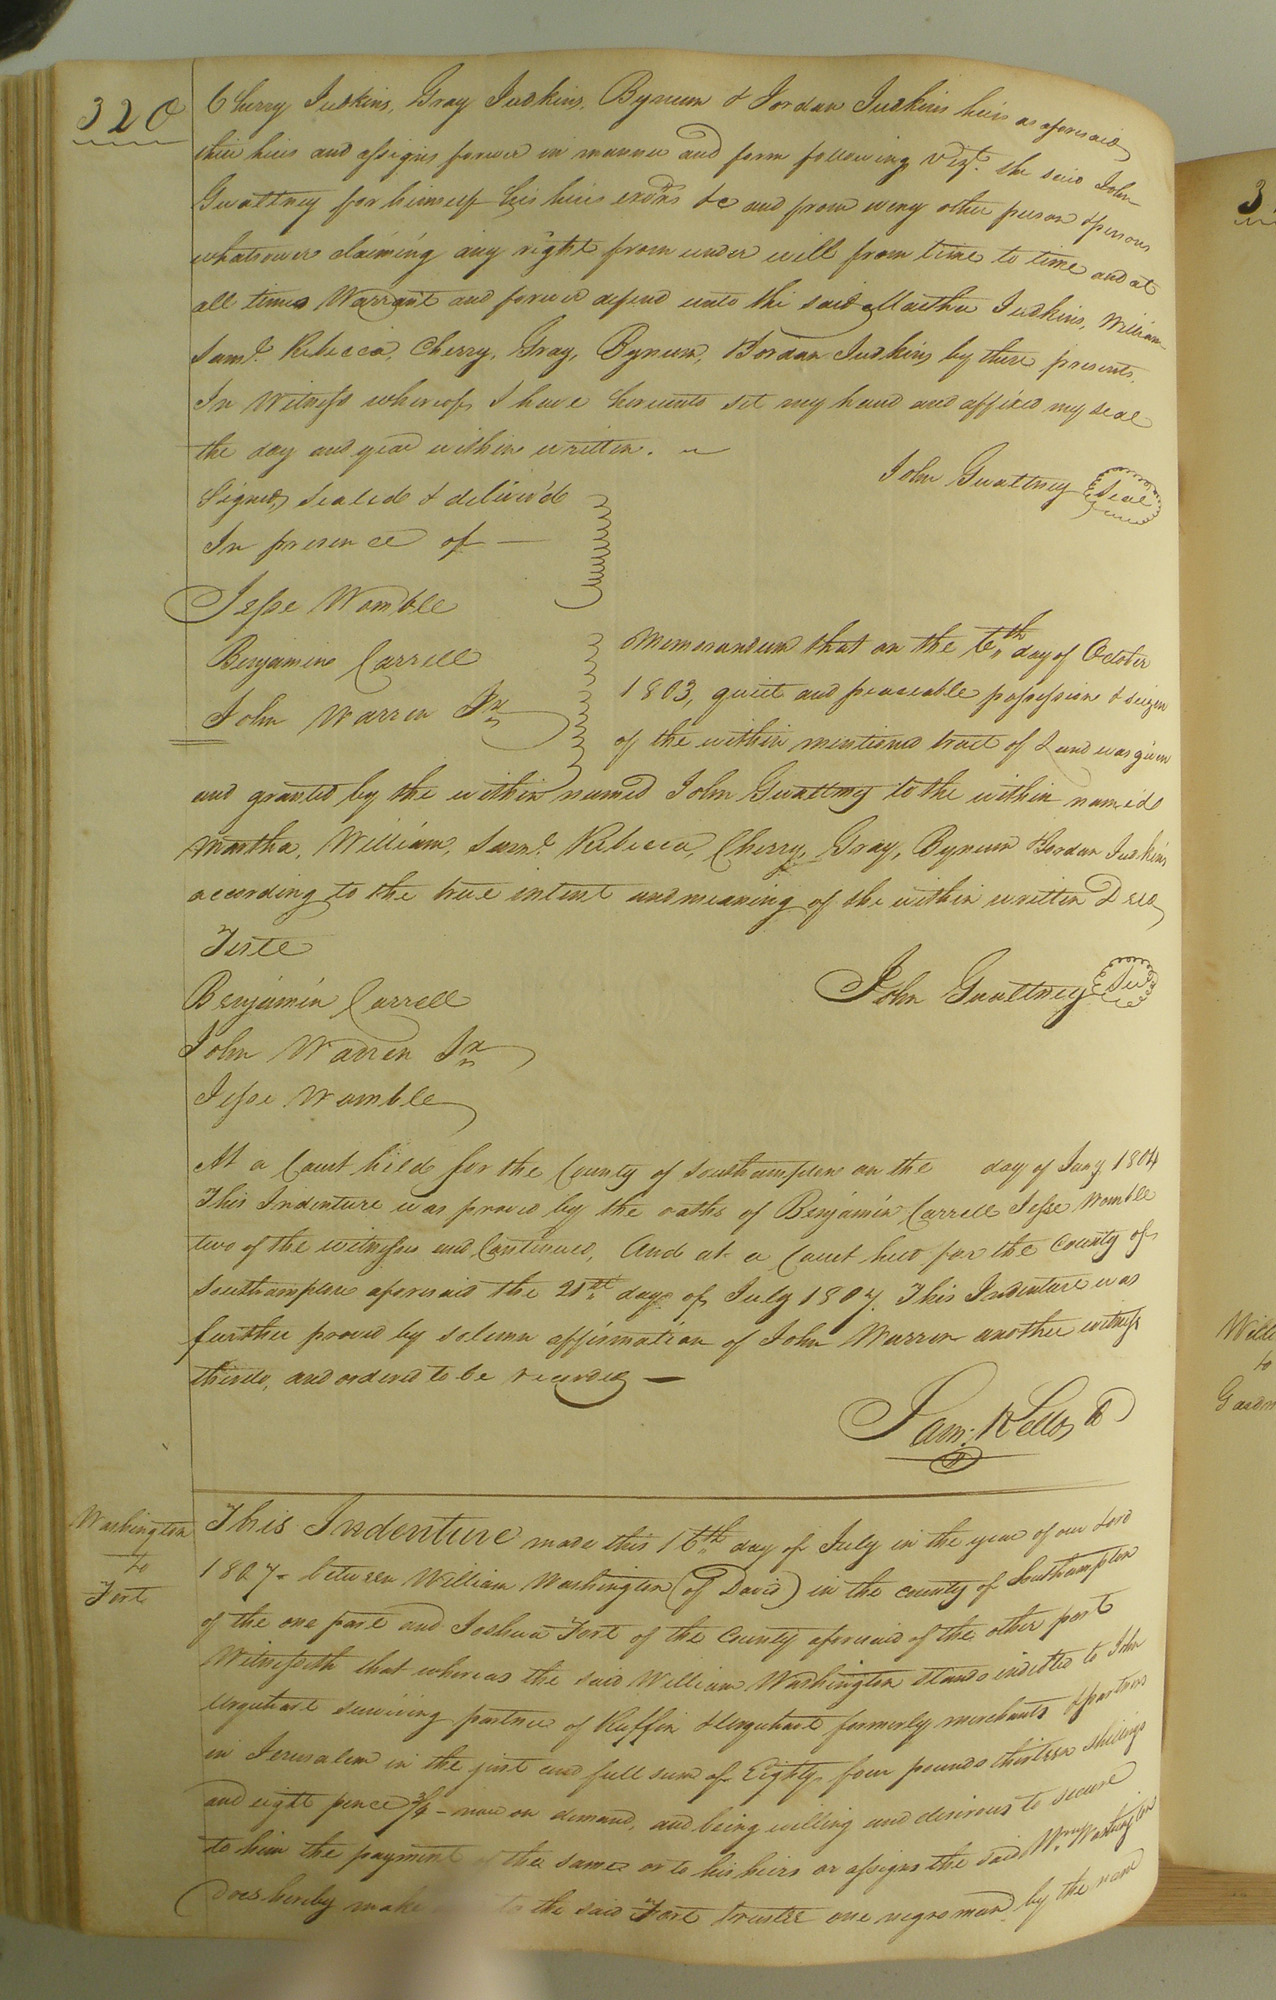 320
Cherry Judkins, Gray Judkins, Bynum & Jordan Judkins heirs as aforesaid
their heirs and assigns forever in manner and form following Vizt. the said John
Gwaltney for himself his heirs exors &c and from every other person & persons
whatsoever claiming any right from under will from time to time and at
all times Warrant and forever defend unto the said Martha Judkins, William
Saml. Rebecca, Cherry, Gray, Bynum, & Jordan Judkins by these presents.
In Witness whereof I have hereunto set my hand and affixed my seal
the day and year within written.
Signed, sealed & deliver'd
In presence of —
John Gwaltney Seal
Jesse Womble
Benjamin Carrell
John Warren Jr
Memorandum that on the 6th day of October
1803, quiet and peaceable possession & seizen
of the within mentioned tract of Land was given
and granted by the within named John Gwaltney to the within named
Martha, William, Saml. Rebecca, Cherry, Gray, Bynum & Jordan Judkins
according to the true intent and meaning of the within written Deed
Teste
Benjamin Carrell
John Gwaltney Seal
John Warren Jr
Jesse Womble
At a Court held for the County of Southampton on the day of Jany 1804
This Indenture was proved by the oaths of Benjamin Carrell Jesse Womble
two of the witnesses and Continued, And at a Court held for the County of
Southampton aforesaid the 20th day of July 1807. This Indenture was
further proved by solemn affirmation of John Warren another witness
thereto, and ordered to be recorded —
Sam. Kello
Washington
to
Fort
This Indenture made this 16th day of July in the year of our Lord
1807 - between William Washington (of David) in the county of Southampton
of the one part and Joshua Fort of the County aforesaid of the other part
Witnesseth that whereas the said William Washington stands indebted to John
Urquhart surviving partner of Ruffin & Urquhart formerly merchants & partners
in Jerusalem in the just and full sum of Eighty four pounds thirteen shillings
and eight pence 3/4 - now on demand, and being willing and desirous to secure
to him the payment of the same or to his heirs or assigns the said Wm Washington
does hereby make to the said Fort trustee one negro man by the name
3
Will
to
Gardn